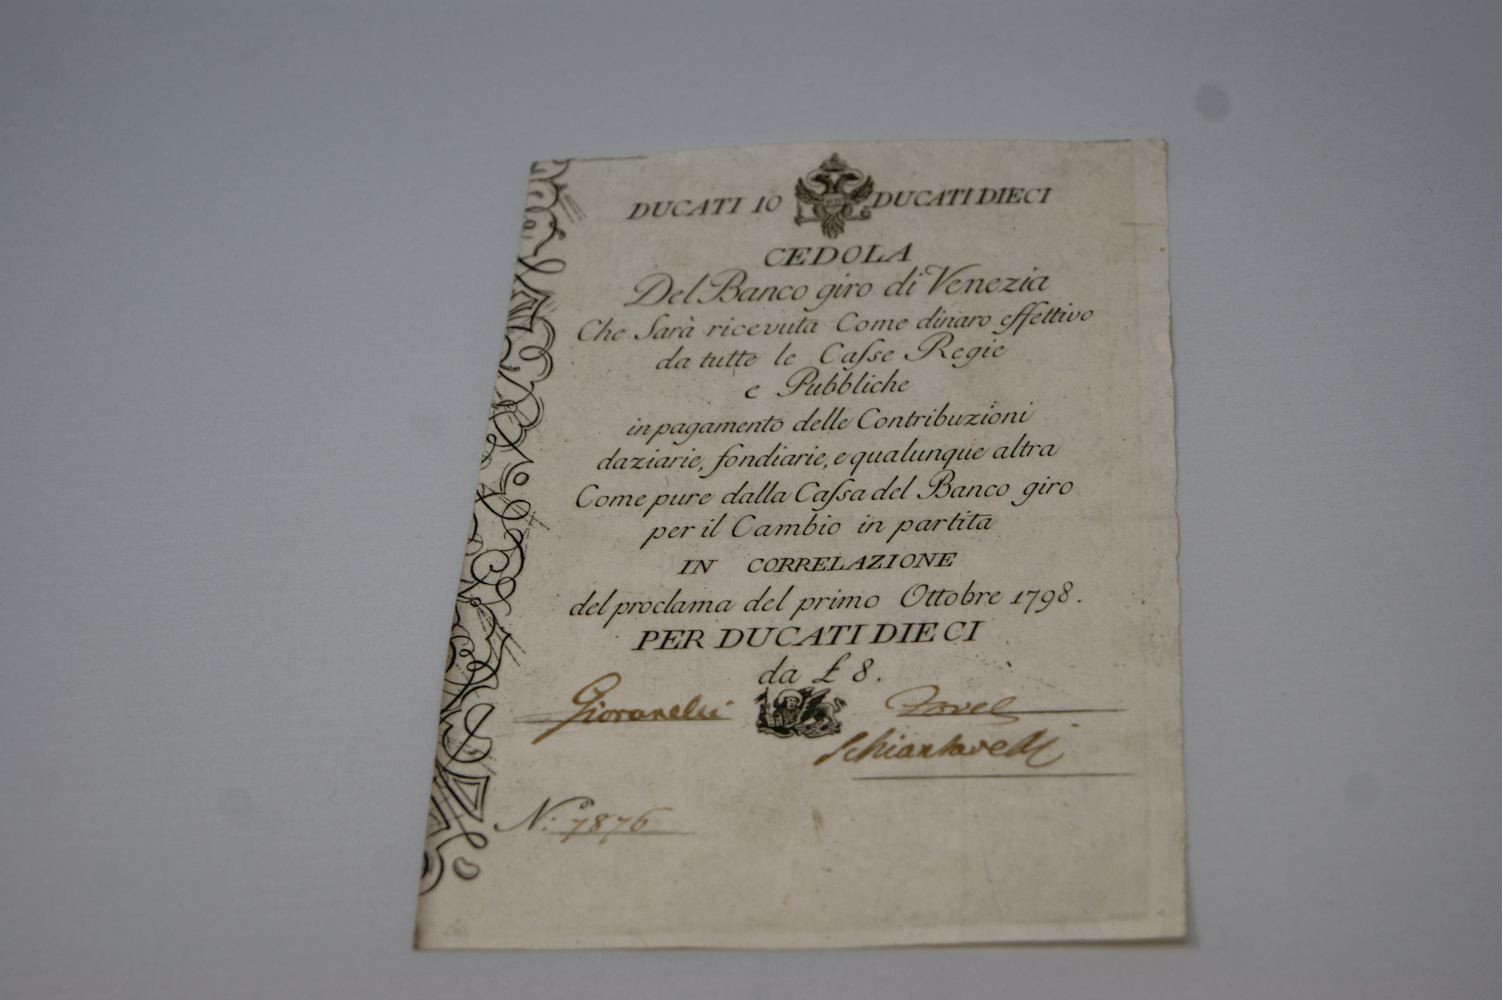 DUCATI 10 DUCATI DIECI
CEDOLA
Del Banco giro di Venezia
Che Sarà ricevuta Come dinaro effettivo
da tutte le Caſse Regie
e Pubbliche
in pagamento delle Contribuzioni
daziarie, fondiarie, e qualunque altra
Come pure dalla Caſsa del Banco giro
per il Cambio in partita
IN CORRELAZIONE
del proclama del primo Ottobre 1798.
PER DUCATI DIECI
da £ 8.
Giovanelli
Schiantarelli
N:º 7876